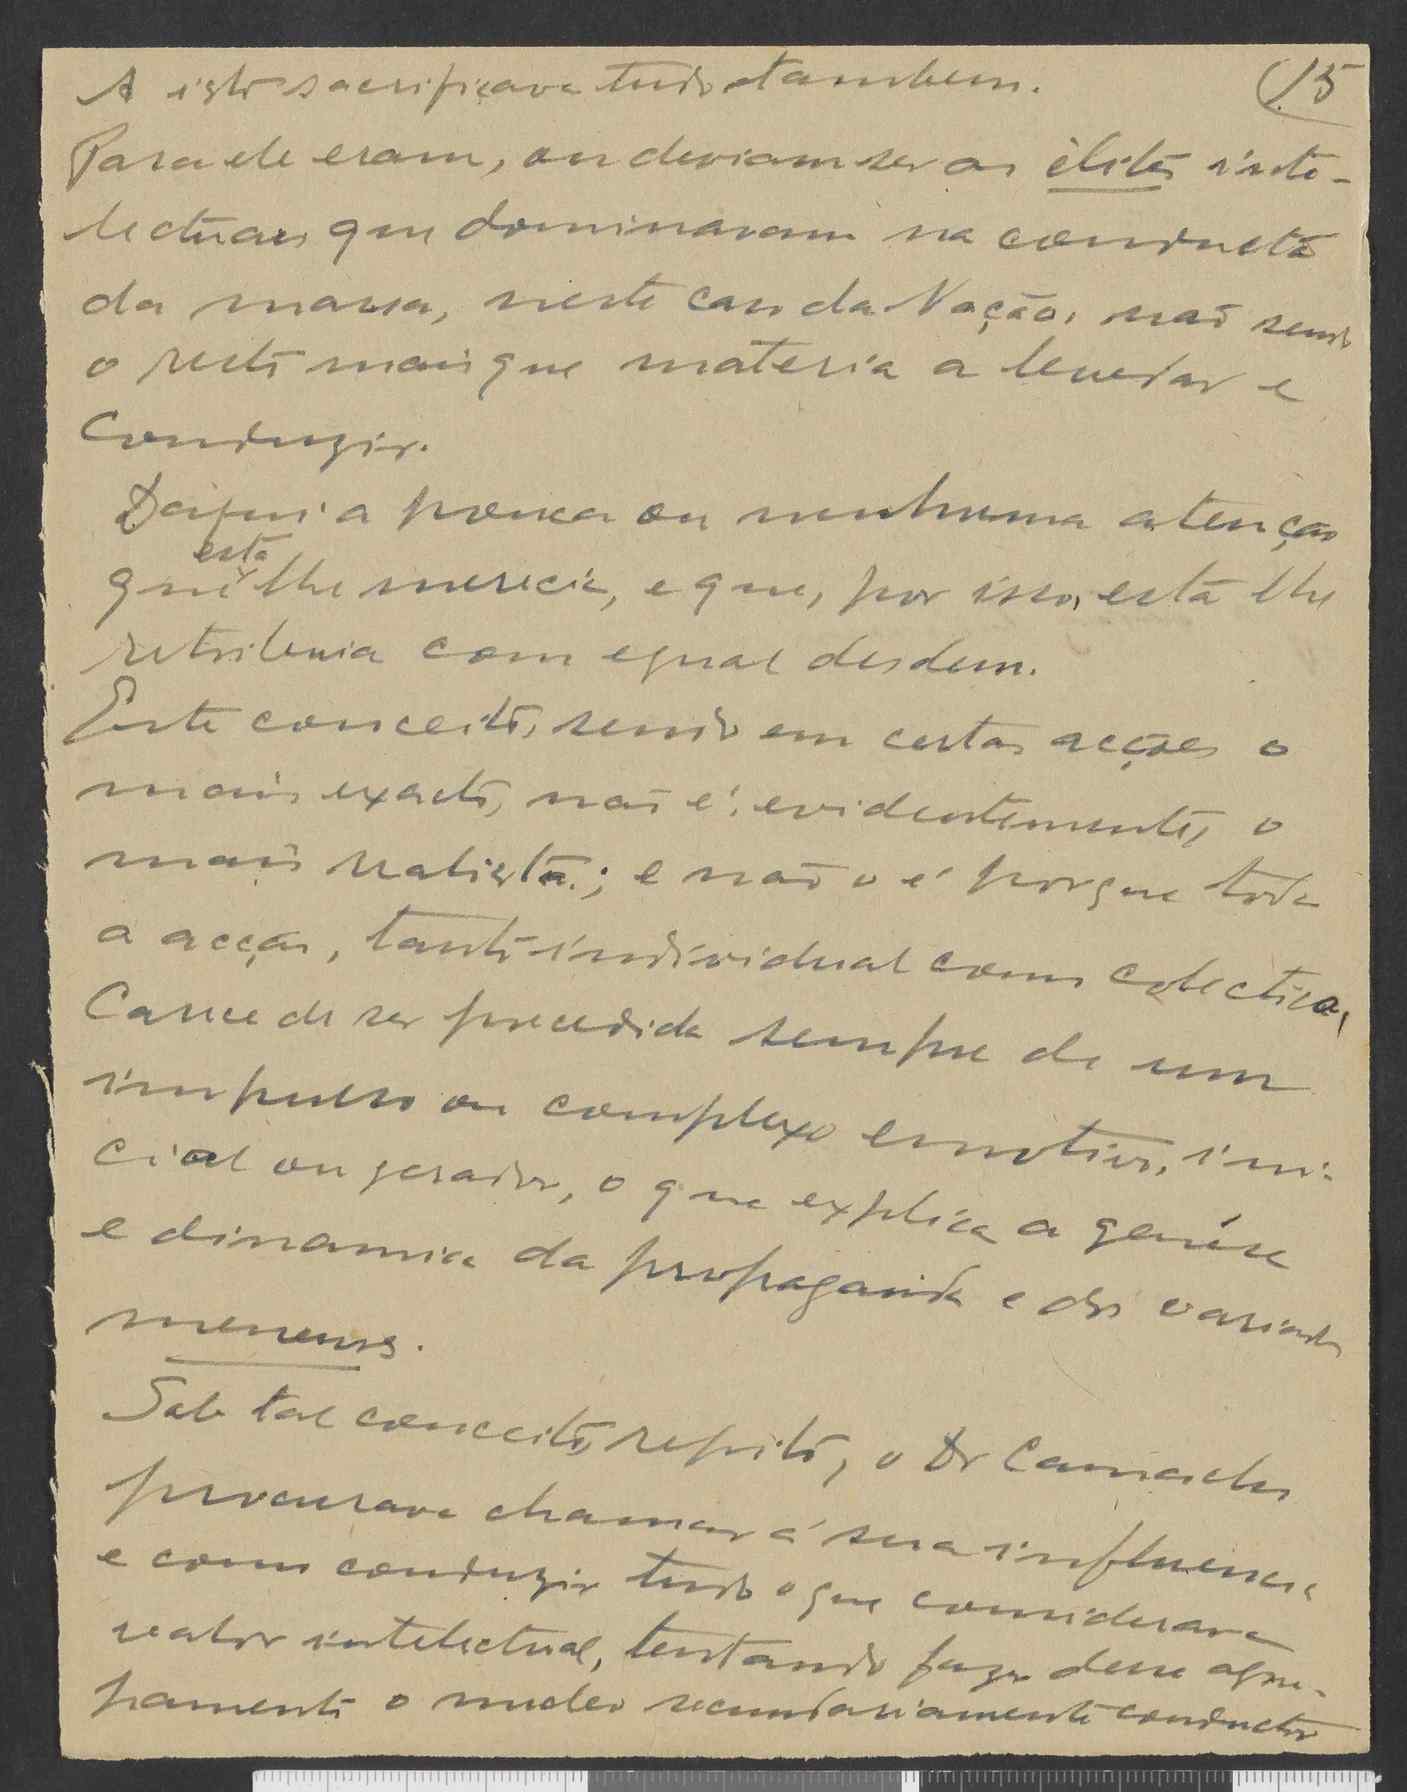 15
A isto sacrificava tudo tambem.
Para ele eram, ou deviam ser as élites inte-
lectuais que dominavam na conducta
da massa, neste caso da Nação, não sendo
o resto mais que materia a levedar e
conduzir.
Daqui a pouca ou nenhuma atenção
que esta lhe merecia, e que, por isso, esta lhe
retribuia com egual desdem.
Este conceito, sendo em certas acções o
mais exacto, não é, evidentemente, o
mais realista; e não o é porque toda
a acção, tanto individual como colectiva,
carece de ser precedida sempre de um
impulso ou complexo emotivo, ini-
cial ou gerador, o que explica a genése
e dinamica da propaganda e dos variados
meneurs.
Sob tal conceito, repito, o Dr Camacho
procurava chamar á sua influencia
e como conduzir tudo o que considerava
valor intelectual, tentando fazer desse agru-
pamento o nucleo secundariamente conductor